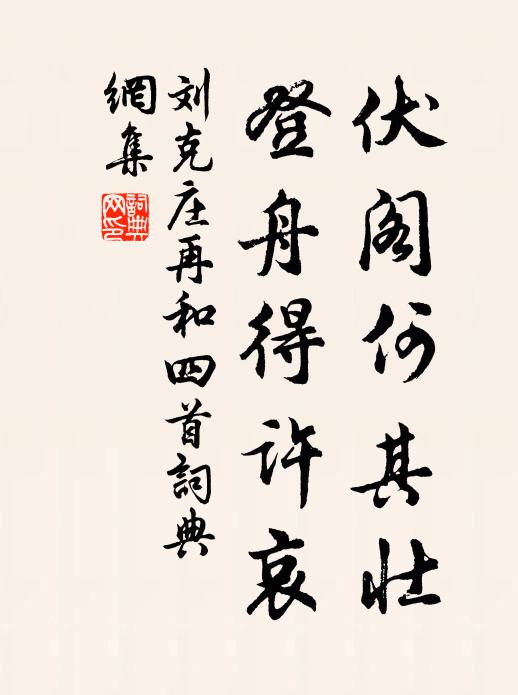 伏阁何其壮
登舟得许哀
刘克庄再和四首詞典
網集
詞典网印